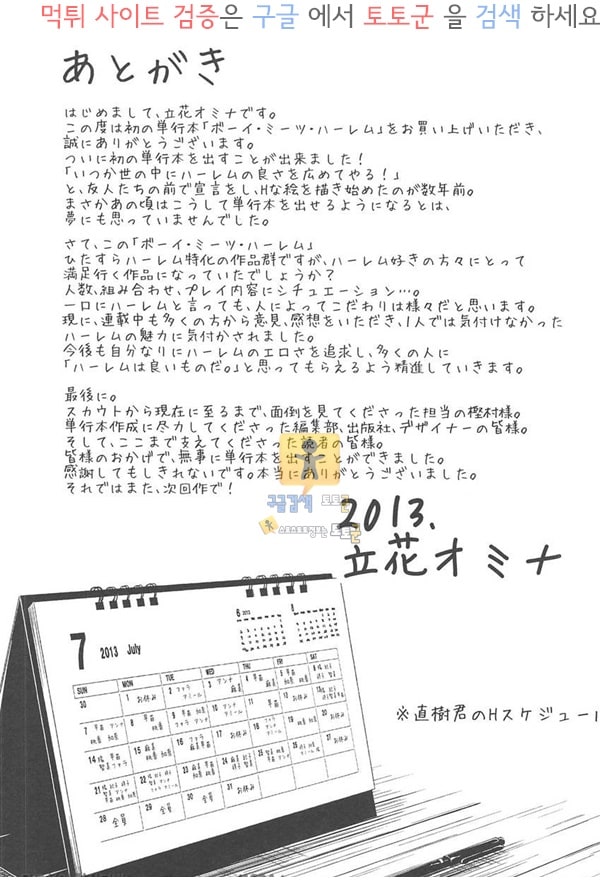 먹튀 사이트 검증은 구글 에서 토토군 을 검색 하세요
あとがき
はじめまして、立花オミナです。
この度は初の単行本「ボーイ・ミーツ・ハーレム」をお買い上げいただき、
誠にありがとうございます。
ついに初の単行本を出すことが出来ました!
「いつか世の中にハーレムの良さを広めてやる!」
と、友人たちの前で宣言をし、Hな絵を描き始めたのが数年前。
まさかあの頃はこうして単行本を出せるようになるとは、
夢にも思っていませんでした。
さて、この「ボーイ・ミーツ・ハーレム」
ひたすらハーレム特化の作品群ですが、ハーレム好きの方々にとって
満足行く作品になっていたでしょうか?
人数、組み合わせ、プレイ内容にシチュエーション…。
一口にハーレムと言っても、人によってこだわりは様々だと思います。
現に、連載中も多くの方から意見、感想をいただき、1人では気付けなかった
ハーレムの魅力に気付かされました。
今後も自分なりにハーレムのエロさを追求し、多くの人に
「ハーレムは良いものだ。」と思ってもらえるよう精進していきます。
最後に。
スカウトから現在に至るまで、面倒を見てくださった担当の樫村様。
単行本作成に尽力してくださった編集部、出版社、デザイナーの皆様。
そして、ここまで支えてくださった読者の皆様。
皆様のおかげで、無事に単行本を出すことができました。
感謝してもしきれないです。本当にありがとうございました。
それではまた、次回作で!
구글검색 토토군
2013.
立花オミナ
7 2013 July
6 2013
8
SUN MON TUE WED THU FRI SAT
30 1 お休み 2 ファラ アミール 3 4 5 6
7 8 9 10 11 12 お休み 13
14 15 お休み 16 17 18 19 20
21 22 お休み 23 24 25 26 27
28 全員 29 全員 30 全員 31 お休み
※直樹君のHスケジュール